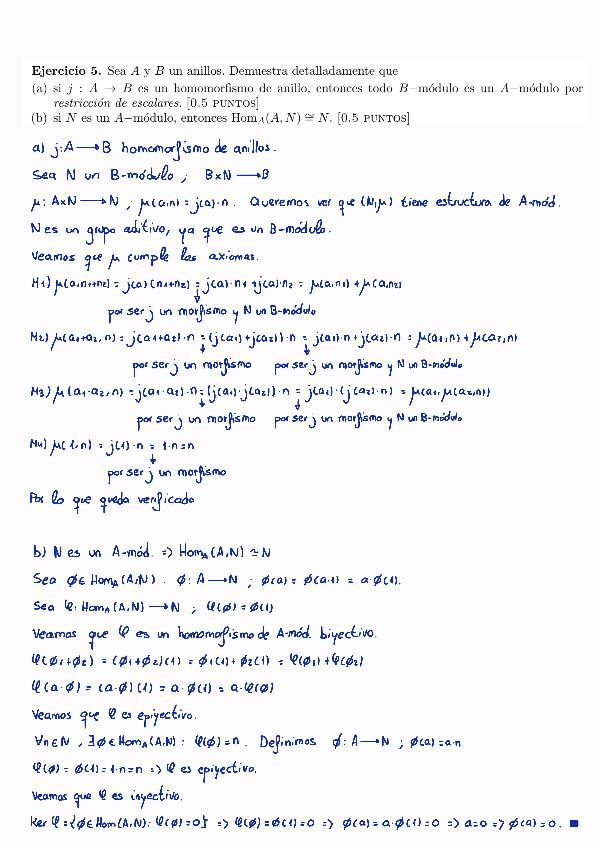 Ejercicio 5. Sea A y B un anillos. Demuestra detalladamente que
(a) si j : A → B es un homomorfismo de anillo, entonces todo B−módulo es un A−módulo por
restricción de escalares. [0.5 PUNTOS]
(b) si N es un A−módulo, entonces Hom_A(A, N) ≅ N. [0.5 PUNTOS]
a) j: A → B homomorfismo de anillos.
Sea N un B-módulo ; B×N → B
μ: A×N → N ; μ(a,n) = j(a)·n . Queremos ver que (N,μ) tiene estructura de A-mód.
N es un grupo aditivo, ya que es un B-módulo.
Veamos que μ cumple los axiomas.
M1) μ(a,n1+n2) = j(a)(n1+n2) = j(a)·n1 + j(a)·n2 = μ(a,n1) + μ(a,n2)
por ser j un morfismo y N un B-módulo
M2) μ(a1+a2,n) = j(a1+a2)·n = (j(a1)+j(a2))·n = j(a1)·n+j(a2)·n = μ(a1,n) + μ(a2,n)
por ser j un morfismo por ser j un morfismo y N un B-módulo
M3) μ(a1·a2,n) = j(a1·a2)·n = (j(a1)·j(a2))·n = j(a1)·(j(a2)·n) = μ(a1,μ(a2,n))
por ser j un morfismo por ser j un morfismo y N un B-módulo
M4) μ(1,n) = j(1)·n = 1·n = n
por ser j un morfismo
Por lo que queda verificado
b) N es un A-mód. => Hom_A(A,N) ≃ N
Sea ϕ ∈ Hom_A(A,N) . ϕ: A → N ; ϕ(a) = ϕ(a·1) = a·ϕ(1).
Sea φ: Hom_A(A,N) → N ; φ(ϕ) = ϕ(1)
Veamos que φ es un homomorfismo de A-mód. biyectivo.
φ(ϕ1+ϕ2) = (ϕ1+ϕ2)(1) = ϕ1(1)+ϕ2(1) = φ(ϕ1)+φ(ϕ2)
φ(a·ϕ) = (a·ϕ)(1) = a·ϕ(1) = a·φ(ϕ)
Veamos que φ es epiyectivo.
∀n∈N , ∃ϕ∈Hom_A(A,N) : φ(ϕ) = n . Definimos ϕ: A → N ; ϕ(a) = a·n
φ(ϕ) = ϕ(1) = 1·n = n => φ es epiyectivo.
Veamos que φ es inyectivo.
Ker φ = {ϕ∈Hom(A,N) : φ(ϕ) = 0} => φ(ϕ) = ϕ(1) = 0 => ϕ(a) = a·ϕ(1) = 0 => a=0 => ϕ(a) = 0 . ■